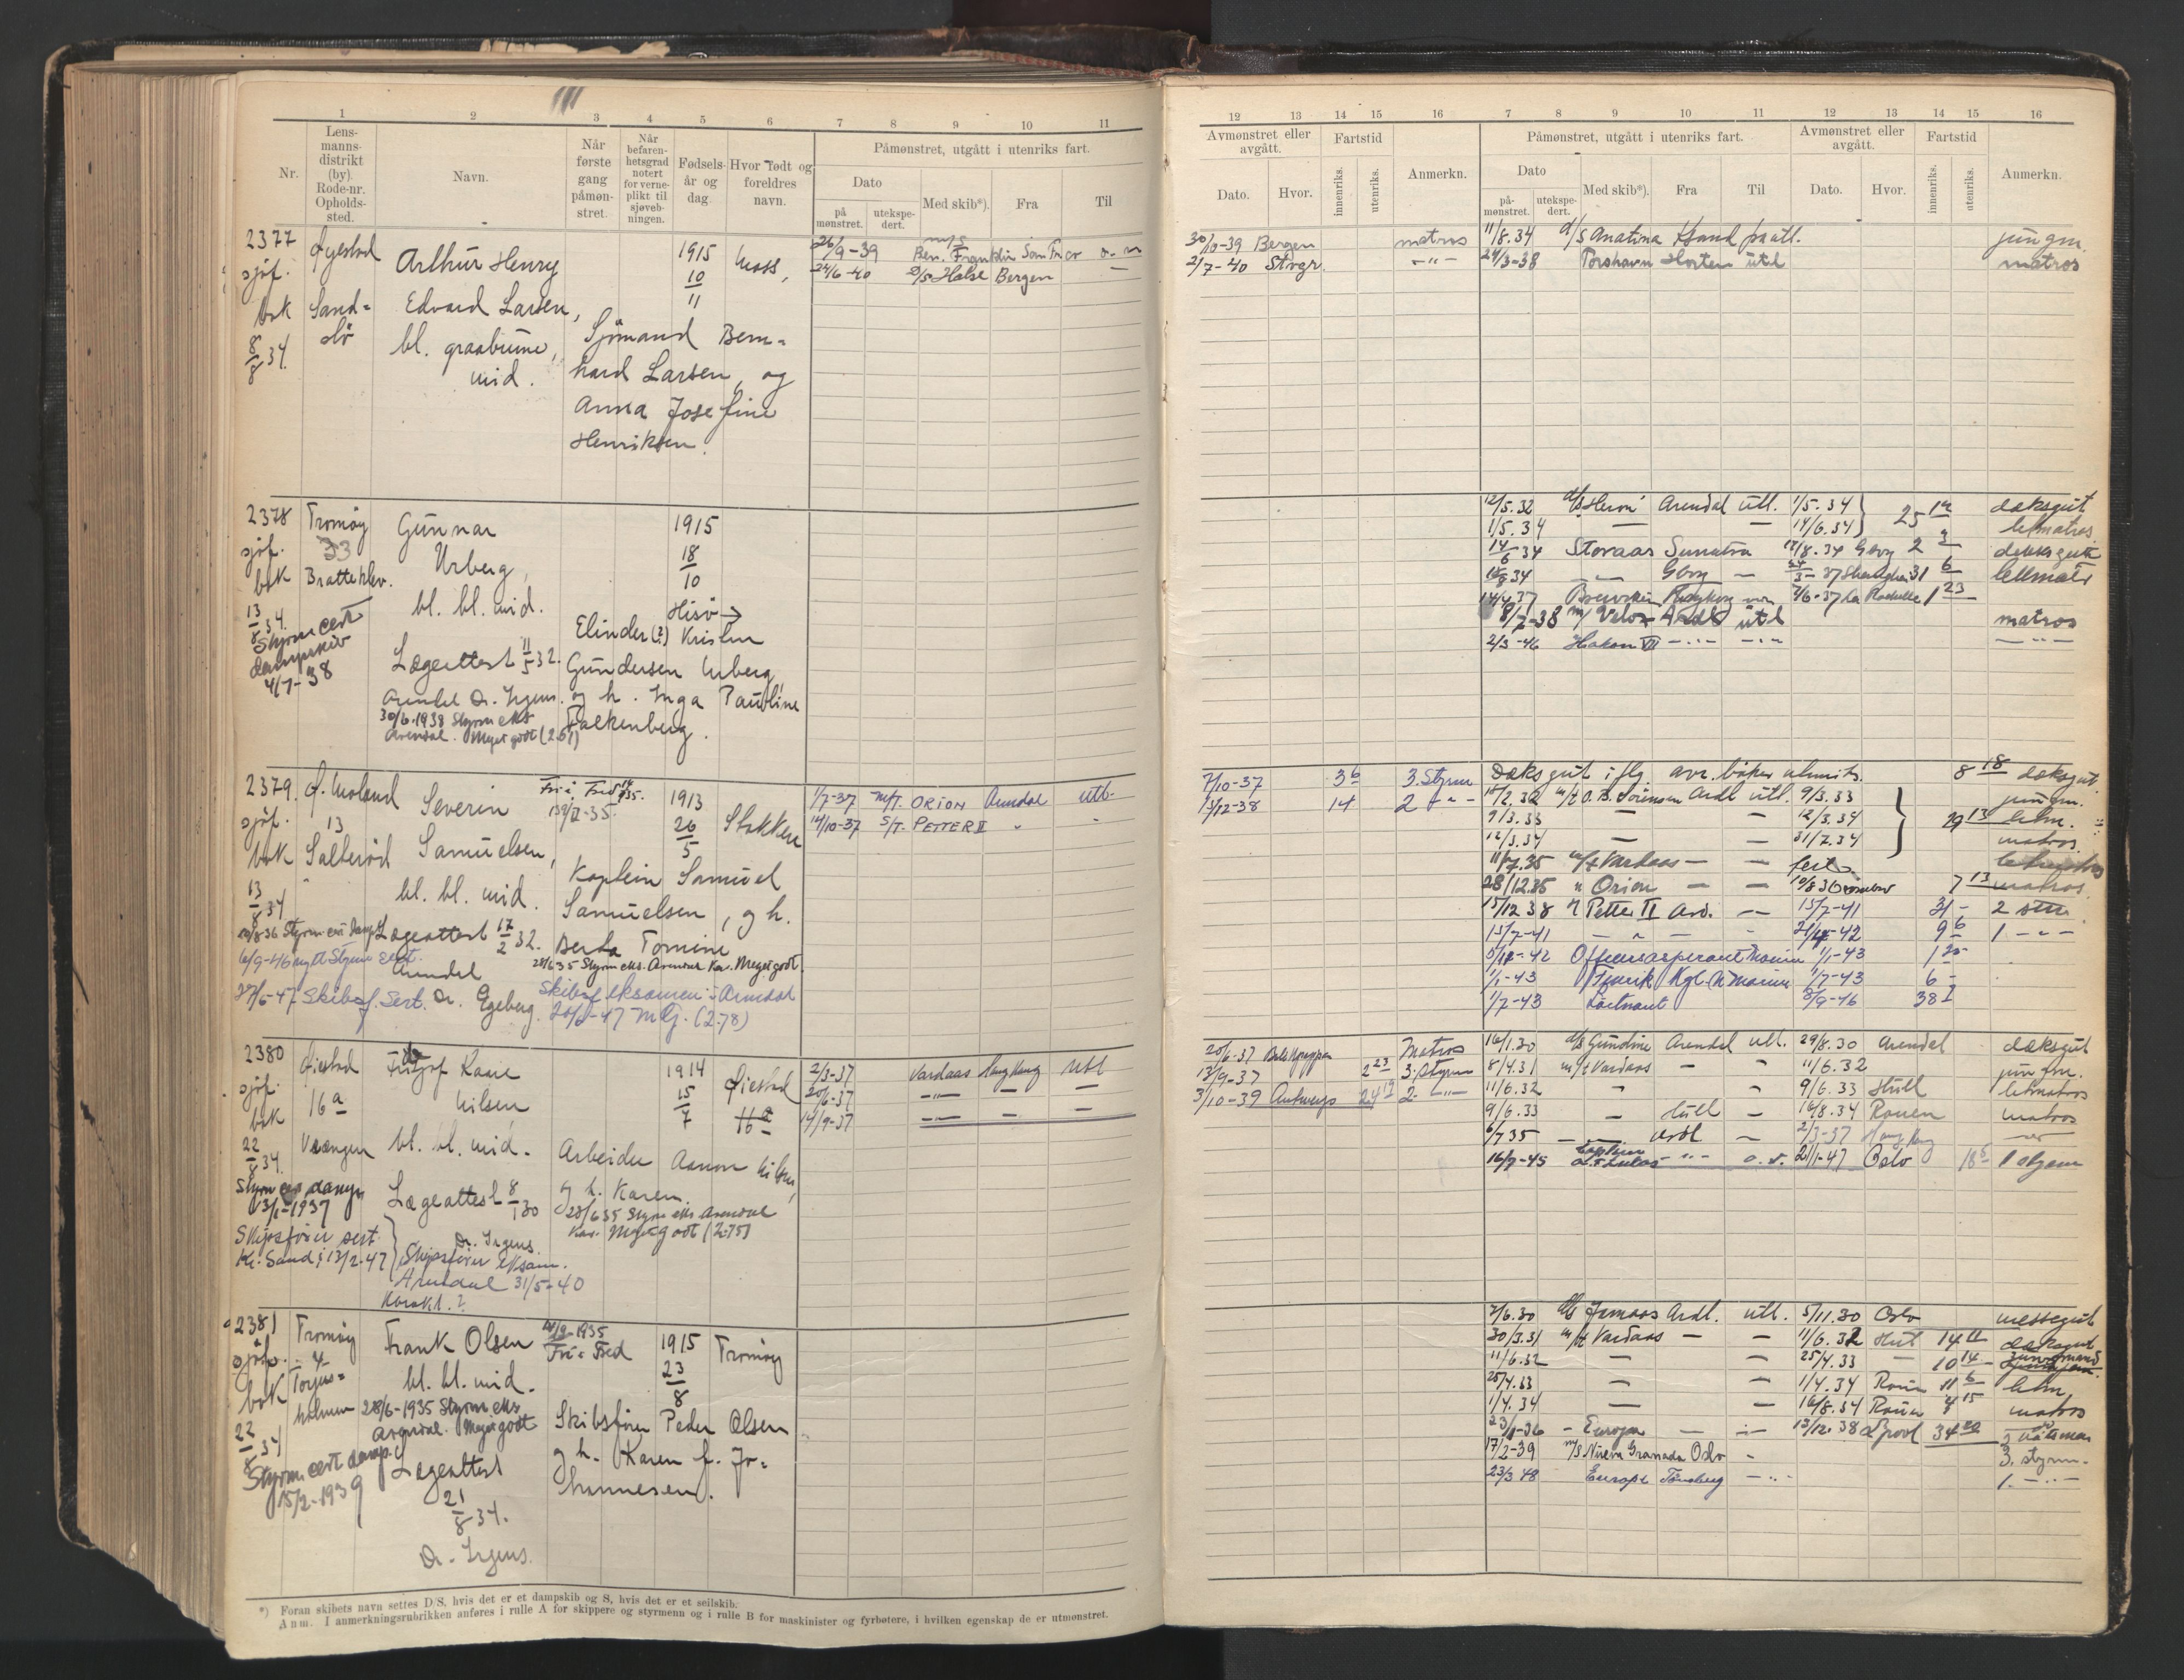 1 2 3 4 5 6 7 8 9 10 11
Nr.
Lens-
manns-
distrikt
(by).
Rode-nr.
Opholds-
sted.
Navn.
Når
første
gang
påmøn-
stret.
Når
befaren-
hetsgrad
notert
for verne-
plikt til
sjøveb-
ningen.
Fødsels-
år og
dag.
Hvor født og
foreldres
navn.
Påmønstret, utgått i utenriks fart.
Dato
på
mønstret.
utekspe-
dert.
Med skib*).
Fra
Til
12 13 14 15 16 7 8 9 10 11 12 13 14 15 16
Avmønstret eller
avgått.
Dato. Hvor.
Fartstid
innenriks.
utenriks.
Anmerkn.
Påmønstret, utgått i utenriks fart.
Dato
på-
mønstret.
utekspe-
dert.
Med skib*). Fra Til
Avmønstret eller
avgått.
Dato. Hvor.
Fartstid
innenriks.
utenriks.
Anmerkn.
2377
sjøf.
bok
8/8 34.
Øyestad
Sand=
Arthur Henry
Edvard Larsen,
bl. graabrune,
mid.
1915
10
11
Moss,
Sjømand Bern=
hard Larsen, og
Anna Josefine
Henriksen.
26/9-39 Ben. Franklin
24/6-40 D/S Halse Bergen
30/10-39 Bergen matros
2/7-40 Stvgr. -"-
11/8.34 d/s Anatina
jungm.
24/3-38 Torshavn Horten utl
matros
2378
sjøf.
bok
13/8 34.
Styrm cert
dampskib
4/7-38
Tromøy
33
Bratteklev.
Gunnar
Urberg,
bl. bl. mid.
Lægeattest 11/5 32.
Arendal Dr. Irgens.
30/6-1938 Styrm eks
Arendal. Meget godt
1915
18
10
Hisø →
Elinder (?) Kristen
Gundersen Urberg
og h. Inga Pauline
Falkenberg.
12/5.32 d/s Heron Arendal utl. 1/5.34 dæksgut
1/5.34 — — 14/6.34 25 letmatros
14/6 34 Storaas Sumatra 18/8.34 Gbrg 2 dekksgutt
18/8 34 -"- Gbrg — Shanghai 31 6 lettmatr
1 23
8/7-38 m/ Velox utl matros
2/3-46 Hakon VII -"- -"- -"-
2379.
sjøf.
bok
13/8 34
Ø. Moland
13
Salterød
Severin
Samuelsen,
bl. bl. mid.
1913
26
5
Stokken
Kaptein Samuel
Samuelsen, g h.
Berta Tomine
Lægeattest 17/2 32.
Arendal
Dr. Egeberg.
28/6 35 Styrm eks. Arendal Kar. Meget godt.
6/9-46 nytt Styrm sert.
27/6-47 Skibsf. Sert.
Skibsf eksamen i Arendal
20/6-47 M.G. (2.78)
1/7-37 M/T. ORION Arendal utl.
14/10-37 S/T. PETTER II " "
7/10-37 3 6 3. Styrm
13/12-38 14 2 -"-
Dæksgut iflg. avr. bøker 8 18 dæksgut.
18/2.32 m/t O. B. Sörensen Ardl utl. 9/3.33 jungm.
9/3.33 — — 12/3.34 29 13 letm.
12/3.34 — — 31/7.34 matros.
m/t Vardaas — —
28/12.35 " Orion — — 7 13 matros.
15/12 38 " Petter II Ard. — 15/7-41 31 - 2 stm
15/7-41 — " — " 9 6 1 -"-
Offisersaspirant Marin 1/1-43 1
1/1-43 Fenrik Kgl. N Marine 1/7-43 6 -
1/7-43 Løitnant 3/9-46 38
2380
sjøf.
bok
22/8 34.
Øiestad
16 a
Vrængen
Kaare
Nilsen
bl. bl. mid.
1914
15
7
Øiestad
16 a
Arbeider Aanon Nilsen,
g h. Karen.
28/6 35 Styrm eks Arendal
Kar. Meget godt (2.75)
Lægeattest 8/1 30
Dr. Irgens.
13/1-1937
Skipsfører sert.
Kr.Sand: 13/2-47
Skipsfører eksam.
Arendal 31/5-40
Karakt.?
2/3-37 Vardaas Hong Kong Utl
20/6-37 -"- — —
14/9-37 -"- — —
20/6-37 Matros
13/9-37 2 23 3. Styrm
3/10-39 Antwerp 24 19 2. -"-
16/1.30 d/s Gundine Arendal utl. 29/8.30 Arendal dæksgut
8/4.31 m/t Vardaas — — 11/6.32 jungm.
11/6.32 " " 9/6.33 Hull letmatros
9/6.33 — Hull — 16/8.34 Rouen matros
6/7 35 — Ardl — 2/3-37 Hong Kong
16/7-45 -"- 21/1-47 Oslo 18 1 styrm
2381
sjøf.
bok
22/8 34
Styrm cert damp.
15/2-1939
Tromøy
4
Torjus=
holmen
Frank Olsen
bl. bl. mid.
28/6-1935 Styrm eks
Arendal. Meget godt
Lægeattest
21/8 34.
Dr. Irgens.
1915
23
8
Tromøy
Skibsfører Peder Olsen
g h. Karen f. Jo=
hannesen.
7/6.30 d/s Jemaas Ardl. utl. 5/11.30 Oslo messegut
30/3.31 m/t Vardaas — — 11/6.32 14 11 dæksgut
11/6.32 — — 25/4.33 — 10 14 jungmand
25/4.33 — — 1/4.34 Rouen 11 6 letm,
1/4.34 — — 16/8.34 Rouen 4 15 matros
23/1-36 - Europa — 13/12.38 Lpool 34
17/2-39 m/s Nueva Granada Oslo - 3. styrm.
23/3 48 Europa Tønsberg -"- 1. -"-
*) Foran skibets navn settes D/S, hvis det er et dampskib og S, hvis det er et seilskib.
Anm. I anmerkningsrubrikken anføres i rulle A for skippere og styrmenn og i rulle B for maskinister og fyrbøtere, i hvilken egenskap de er utmønstret.